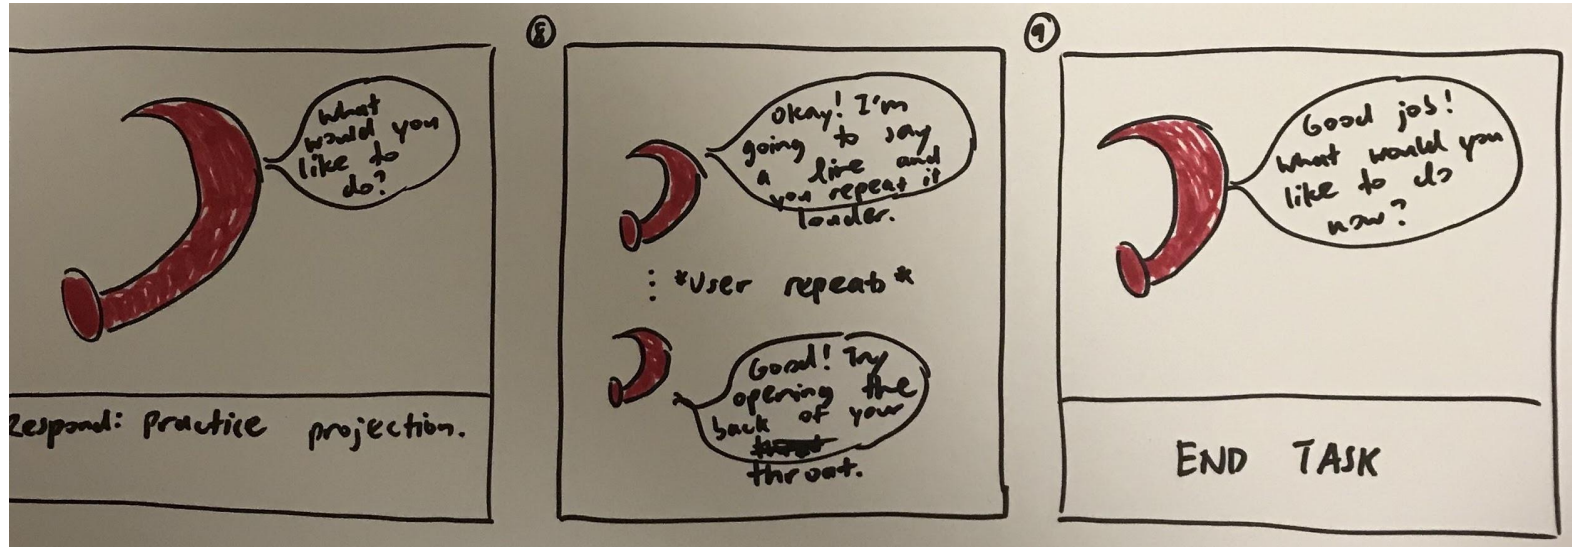 What
would you
like to
do?
Respond: Practice projection.
8
Okay! I'm
going to say
a line and
you repeat it
louder.
*User repeats*
Good! Try
opening the
back of your
throat.
9
Good job!
What would you
like to do
now?
END TASK